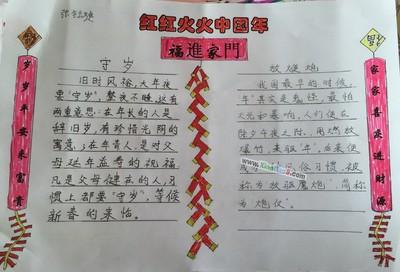 红红火火中国年
福進家門
岁岁平安来富贵
守岁
旧时风俗，大年夜
要"守岁"，整夜不睡，这有
两重意思：在年长的人是
辞旧岁，有珍惜光阴的
寓意；在年青人，是对父
母延年益寿的祝福，
凡是父母健在的人，习
惯上都要"守岁"，等候
新春的来临。
放爆炮
我国最早的时候，
年"其实是鬼怪，最怕
火光和暴响，人们便在
除夕午夜之际，用燃放
爆竹，来驱"年"，后来便
成为风俗习惯，被
称为"放驱魔炮"，简称
为"炮仪"。
家家喜庆进财源